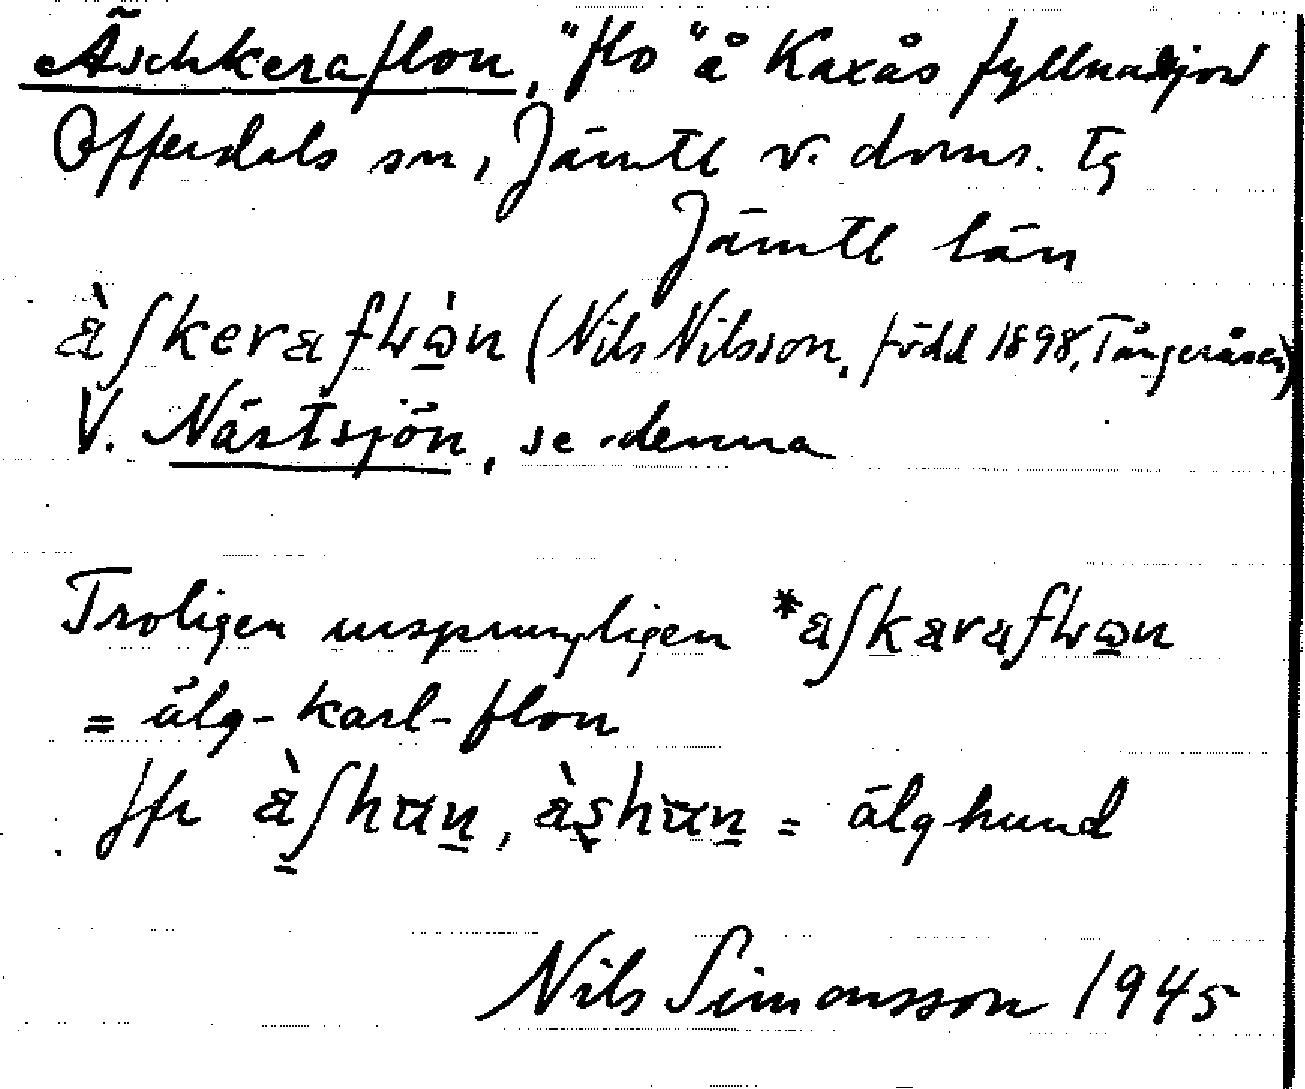 Äschkeraflon, "flo" å Kaxås fyllnadsjord
Offerdals sn, Jämtl v. doms. tg
Jämtl län
(Nils Nilsson, född 1898, Tångeråsen)
V. Nästsjön, se denna
Troligen ursprungligen
= älg-karl-flon
Jfr = älghund
Nils Simonsson 1945